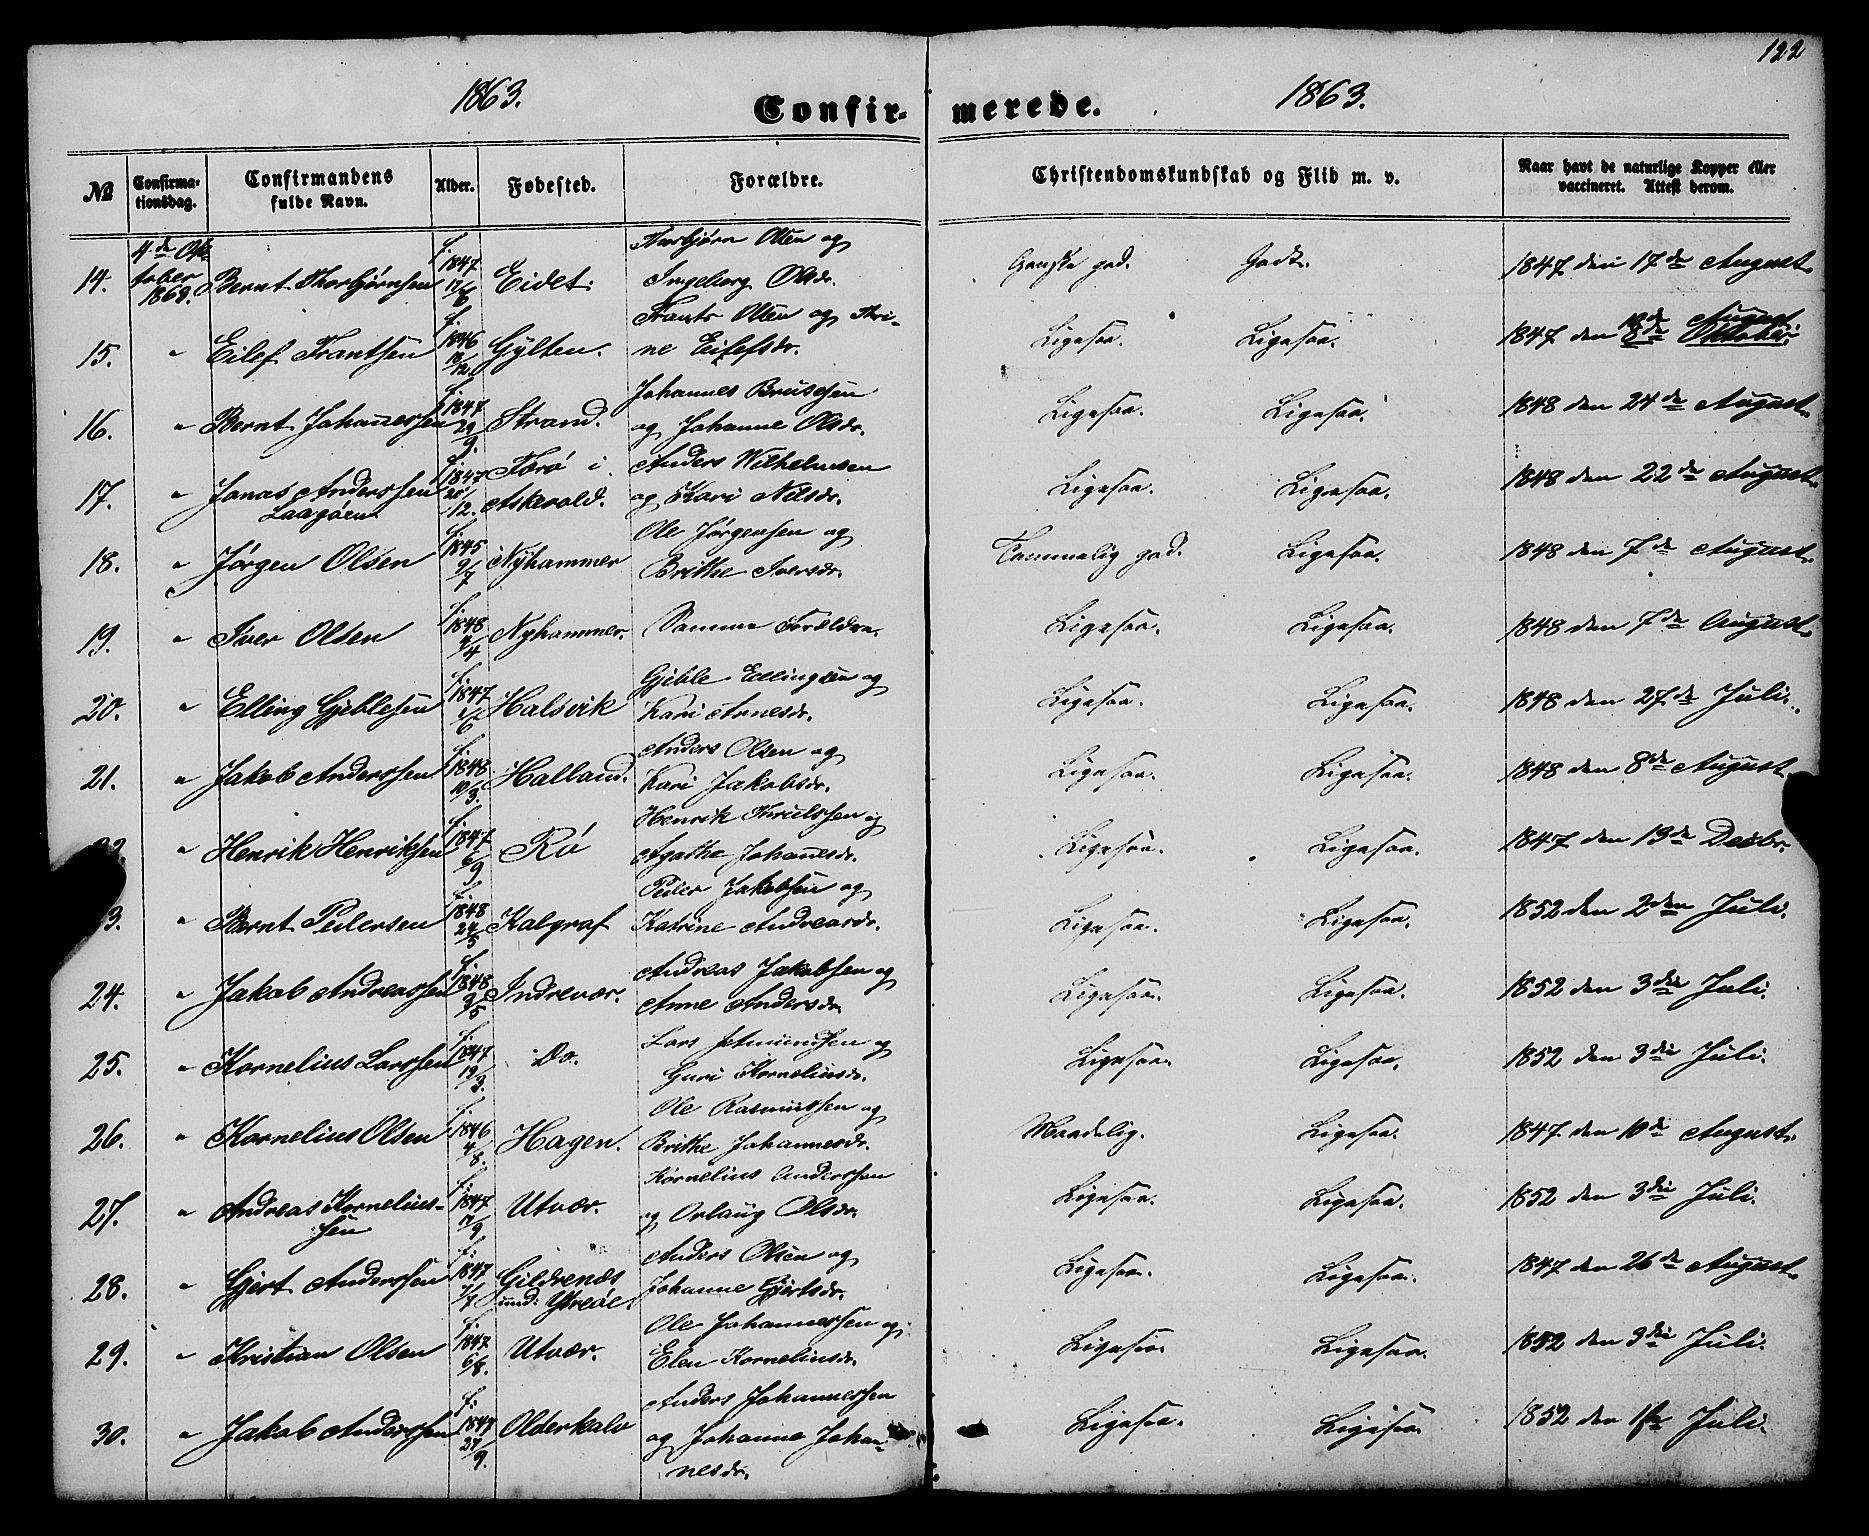 122
1863. Confir- merede. 1863.
№ Confirma-tionsdag. Confirmandens fulde Navn. Alder. Fødested. Forældre. Christendomskundskab og Flid m. v. Naar havt de naturlige Kopper eller vaccineret. Attest derom.
4de Oktober 1863.
14. Bernt Thorbjørnsen f. 1847 17/6 Eidet. Thorbjørn Olsen og Ingeborg Olsdr. Ganske god. Godt. 1847 den 17de August.
15. " Eilef Frantsen f. 1846 Gylten. Frants Olsen og Thrine Eilefsdr. Ligesaa. Ligesaa. 1847 den 18de August
16. " Bernt Johannessen f. 1847 29/9. Strand. Johannes Brusesen og Johanne Olsdr. Ligesaa. Ligesaa. 1848 den 24de August.
17. " Jonas Anderssen Laagøen f. 1847 25/12. Færø i Askevold. Anders Wilhelmsen og Kari Nilsdr. Ligesaa. Ligesaa. 1848 den 22de August.
18. " Jørgen Olsen f. 1845 9/7 Nyhammer Ole Jørgensen og Brithe Iversdr. Temmelig god. Ligesaa. 1848 den 7de August.
19. " Iver Olsen f. 1848 4/4 Nyhammer. Samme Forældre. Ligesaa. Ligesaa. 1848 den 7de August.
20. " Elling Gjeblesen f. 1847 Halsvik Gjeble Ellingsen og Kari Arnesdr. Ligesaa. Ligesaa. 1848 den 27de Juli.
21. " Jakob Anderssen f. 1848 10/3. Halland. Anders Olsen og Kari Jakobsdr. Ligesaa. Ligesaa. 1848 den 8de August.
22. " Henrik Henriksen f. 1847 6/9 Rø Henrik Thrulssen og Agathe Johannesdr. Ligesaa. Ligesaa. 1847 den 13de Decbr.
3. " Bernt Pedersen f. 1848 24/5 Kalgraf Peder Jakobsen og Katrine Andreasdr. Ligesaa. Ligesaa. 1852 den 2den Juli.
24. " Jakob Andreassen f. 1848 9/5 Indrevær. Andreas Jakobsen og Anne Andersdr. Ligesaa. Ligesaa. 1852 den 3die Juli.
25. " Kornelius Larssen f. 1847 19/3. Do. Lars og Guri Korneliusdr. Ligesaa. Ligesaa. 1852 den 3die Juli.
26. " Kornelius Olsen f. 1846 4/8. Hagen. Ole Rasmussen og Brithe Johannesdr. Maadelig. Ligesaa. 1847 den 10de August.
27. " Andreas Korneliussen f. 1847 17/9 Utvær. Kornelius Anderssen og Orlaug Olsdr. Ligesaa. Ligesaa. 1852 den 3die Juli.
28. " Gjert Anderssen f. 1847 7/7 Gildrenæs und. Ytreøe. Anders Olsen og Johanne Gjertsdr. Ligesaa. Ligesaa. 1847 den 26de August.
29. " Kristian Olsen f. 1847 6/8. Utvær. Ole Johannessen og Elen Korneliusdr. Ligesaa Ligesaa. 1852 den 3die Juli.
30. " Jakob Anderssen f. 1847 27/9. Olderkalv Anders Johannessen og Johanne Johannesdr. Ligesaa. Ligesaa 1852 den 1ste Juli.